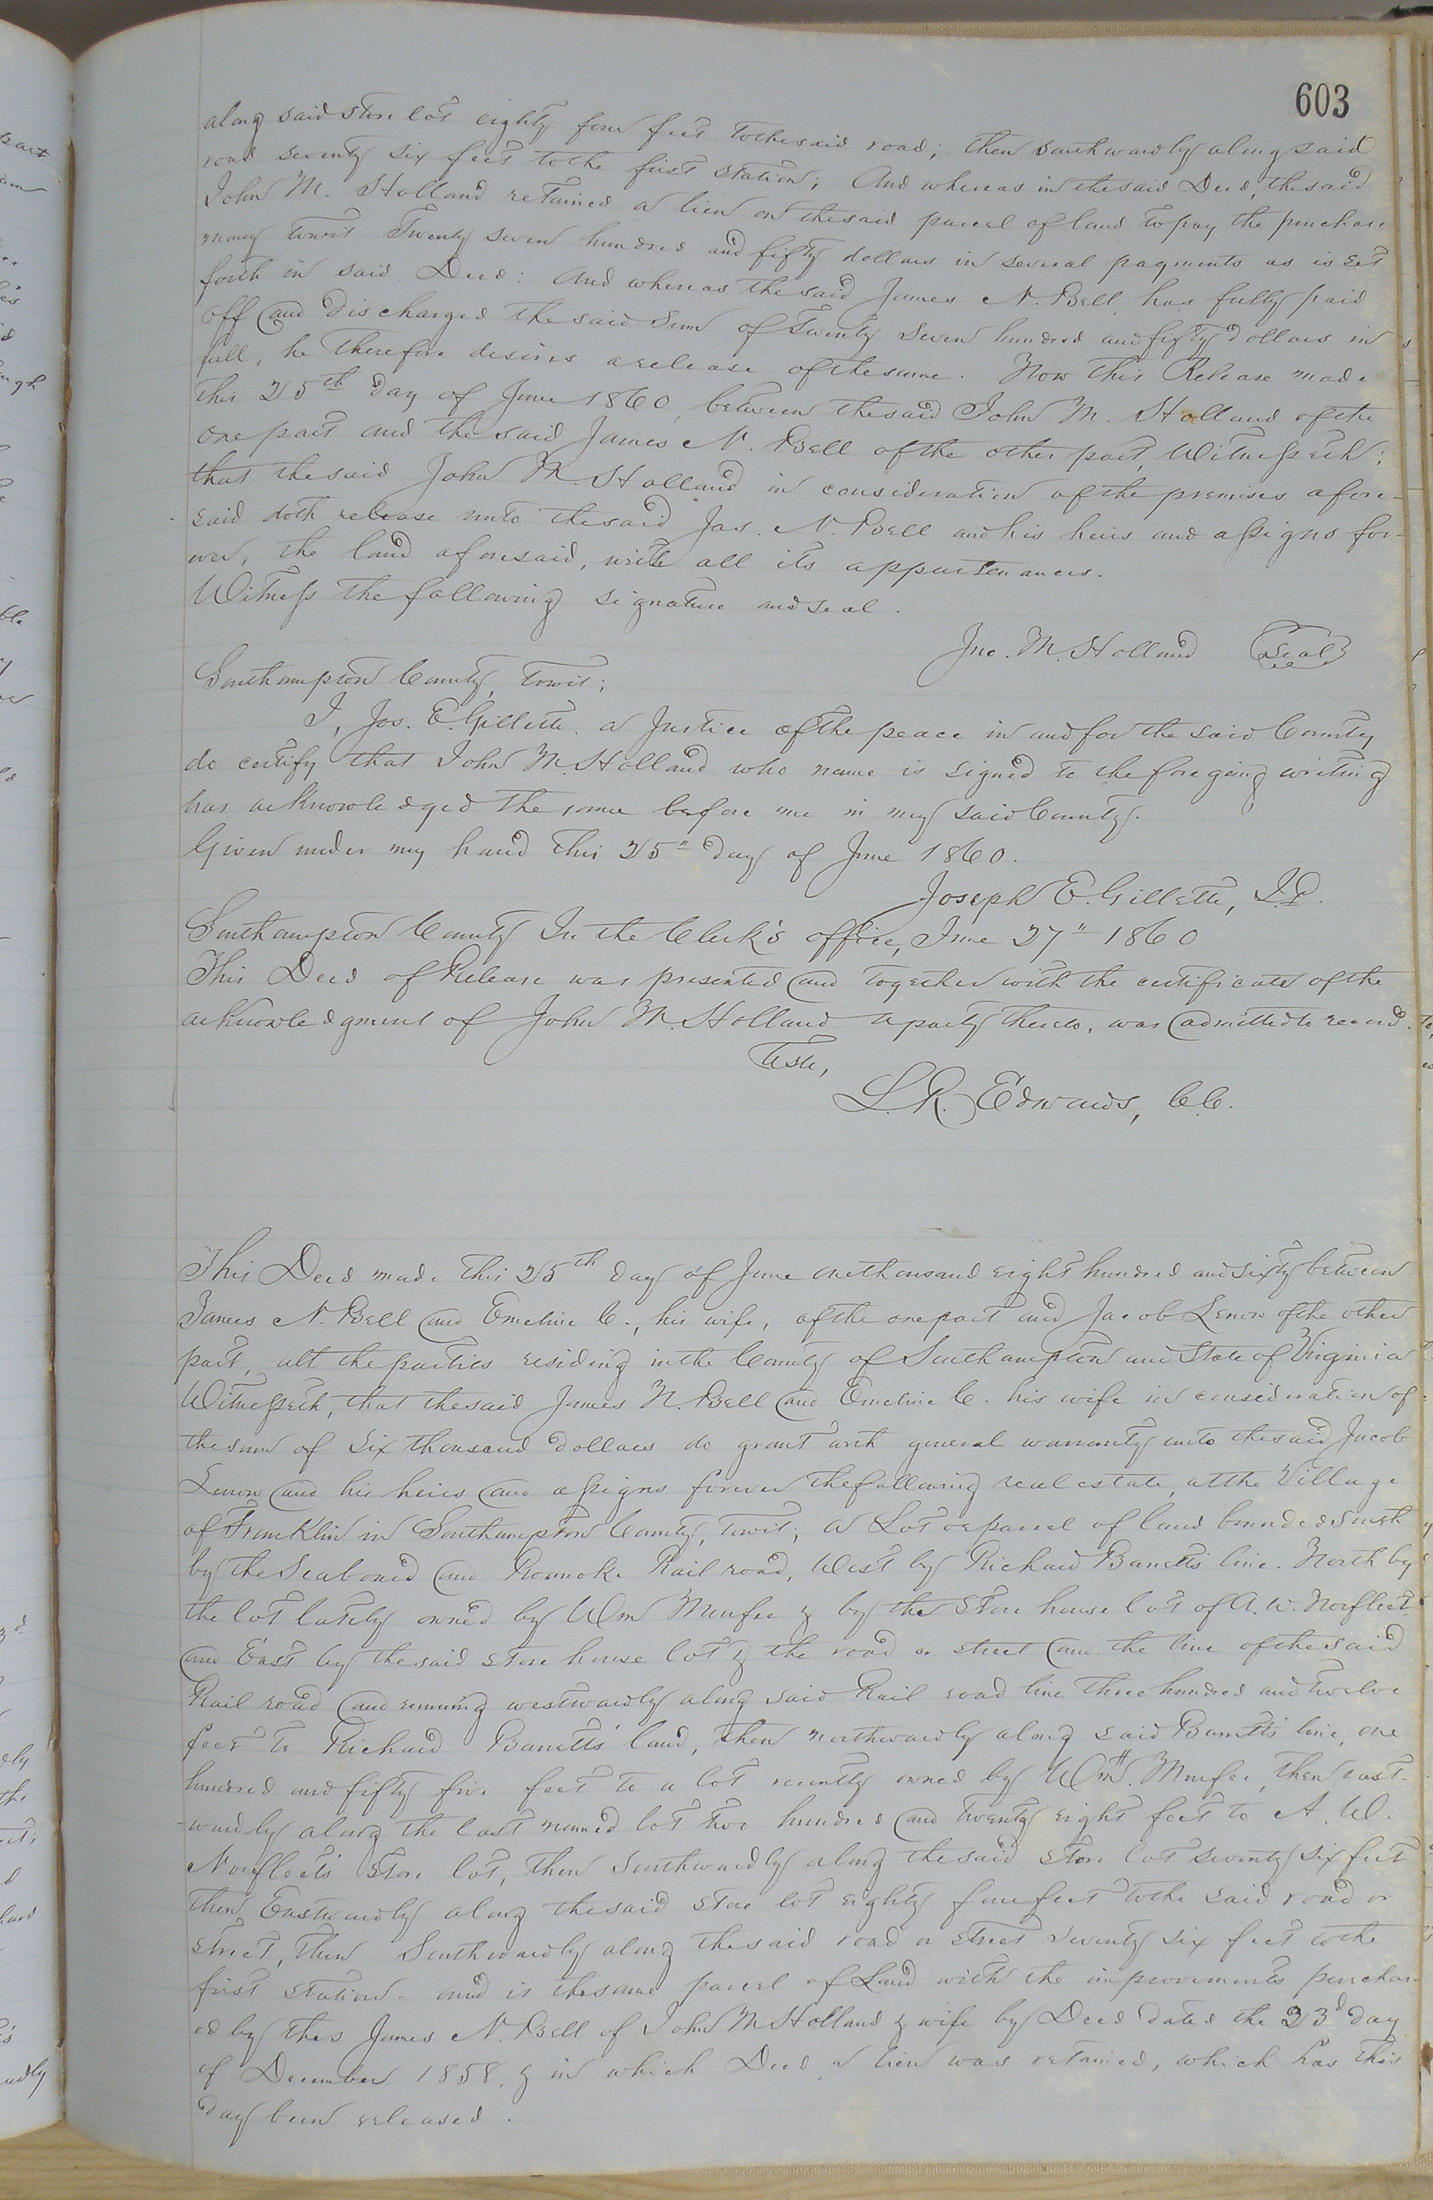 603
along said store lot eighty four feet to the said road; then southwardly along said
road seventy six feet to the first station; And whereas in the said Deed, the said
John M. Holland retained a lien on the said parcel of land to pay the purchase
money towit Twenty seven hundred and fifty dollars in several payments as is set
forth in said Deed: And whereas the said James N. Bell has fully paid
off and discharged the said sum of Twenty seven hundred and fifty dollars in
full, he therefore desires a release of the same. Now this Release made
this 25th day of June 1860, between the said John M. Holland of the
one part and the said James N. Bell of the other part, Witnesseth:
that the said John M. Holland in consideration of the premises afore-
said doth release unto the said Jas. N. Bell and his heirs and assigns for-
ever, the land aforesaid, with all its appurtenances.
Witness the following signature and seal.
Jno. M. Holland Seal
Southampton County, towit;
I, Jos. E. Gillette, a Justice of the peace in and for the said County
do certify that John M. Holland who name is signed to the foregoing writing
has acknowledged the same before me in my said County.
Given under my hand this 25" day of June 1860.
Joseph E. Gillette, J.P.
Southampton County In the Clerk's office, June 27" 1860
This Deed of Release was presented and together with the certificate of the
acknowledgment of John M. Holland a party thereto, was admitted to record.
Teste,
L. R. Edwards, C.C.
This Deed made this 25th day of June one thousand eight hundred and sixty between
James N. Bell and Emeline C., his wife, of the one part and Jacob Lenow of the other
part, all the parties residing in the County of Southampton and State of Virginia
Witnesseth, that the said James N. Bell and Emeline C. his wife in consideration of
the sum of six thousand dollars do grant with general warranty unto the said Jacob
Lenow and his heirs and assigns forever the following real estate, at the Village
of Franklin in Southampton County, towit; a Lot or parcel of land bounded South
by the Seaboard and Roanoke Rail road, West by Richard Barrett's line. North by
the lot lately owned by Wm Murfee & by the Store house lot of A. W. Norfleet
and East by the said store house lot & the road or street and the line of the said
Rail road and running westwardly along said Rail road line three hundred and twelve
feet to Richard Barrett's land, then northwardly along said Barrett's line, one
hundred and fifty five feet to a lot recently owned by Wm H. Murfee, then east-
-wardly along the last named lot two hundred and twenty eight feet to A. W.
Norfleet's Store lot, then Southwardly along the said store lot seventy six feet
then Eastwardly along the said store lot eighty four feet to the said road or
street, then Southwardly along the said road or street seventy six feet to the
first station - and is the same parcel of Land with the improvements purchas-
ed by the James N. Bell of John M Holland & wife by Deed dated the 23d day
of December 1858, & in which Deed a lien was retained, which has this
day been released.